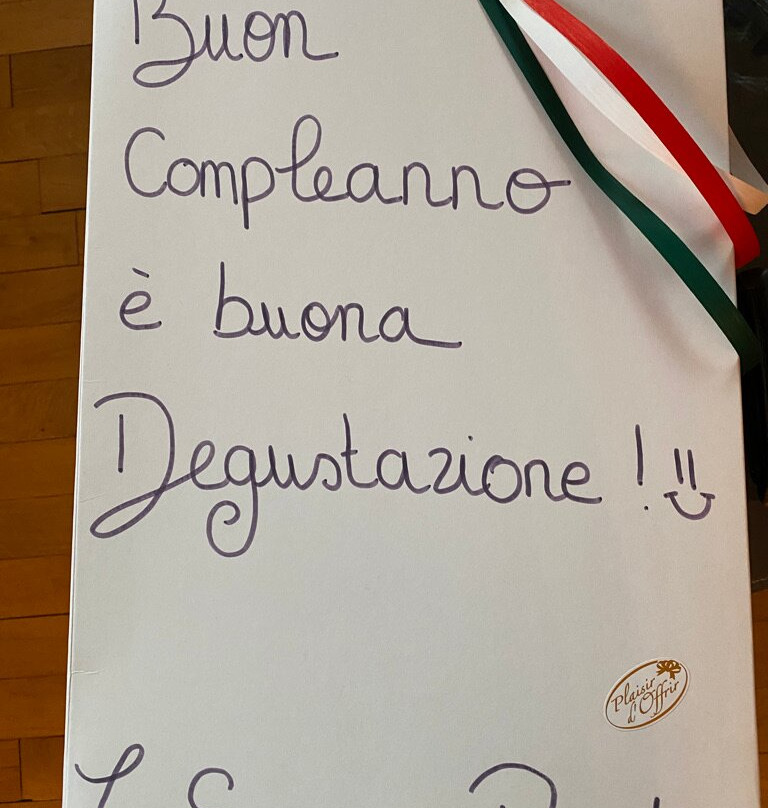 Buon
Compleanno
è buona
Degustazione !
Plaisir
d'Offrir